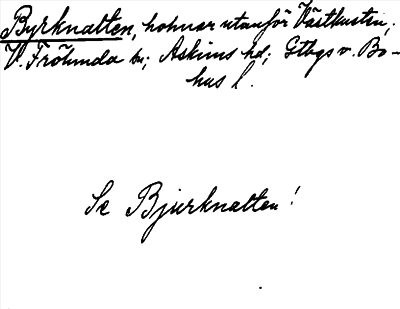 Byrknalten, holmar utanför Västkusten,
V. Frölunda sn; Askims hd; Gtbgs o. Bo-
hus l.
Se Bjurknalten!